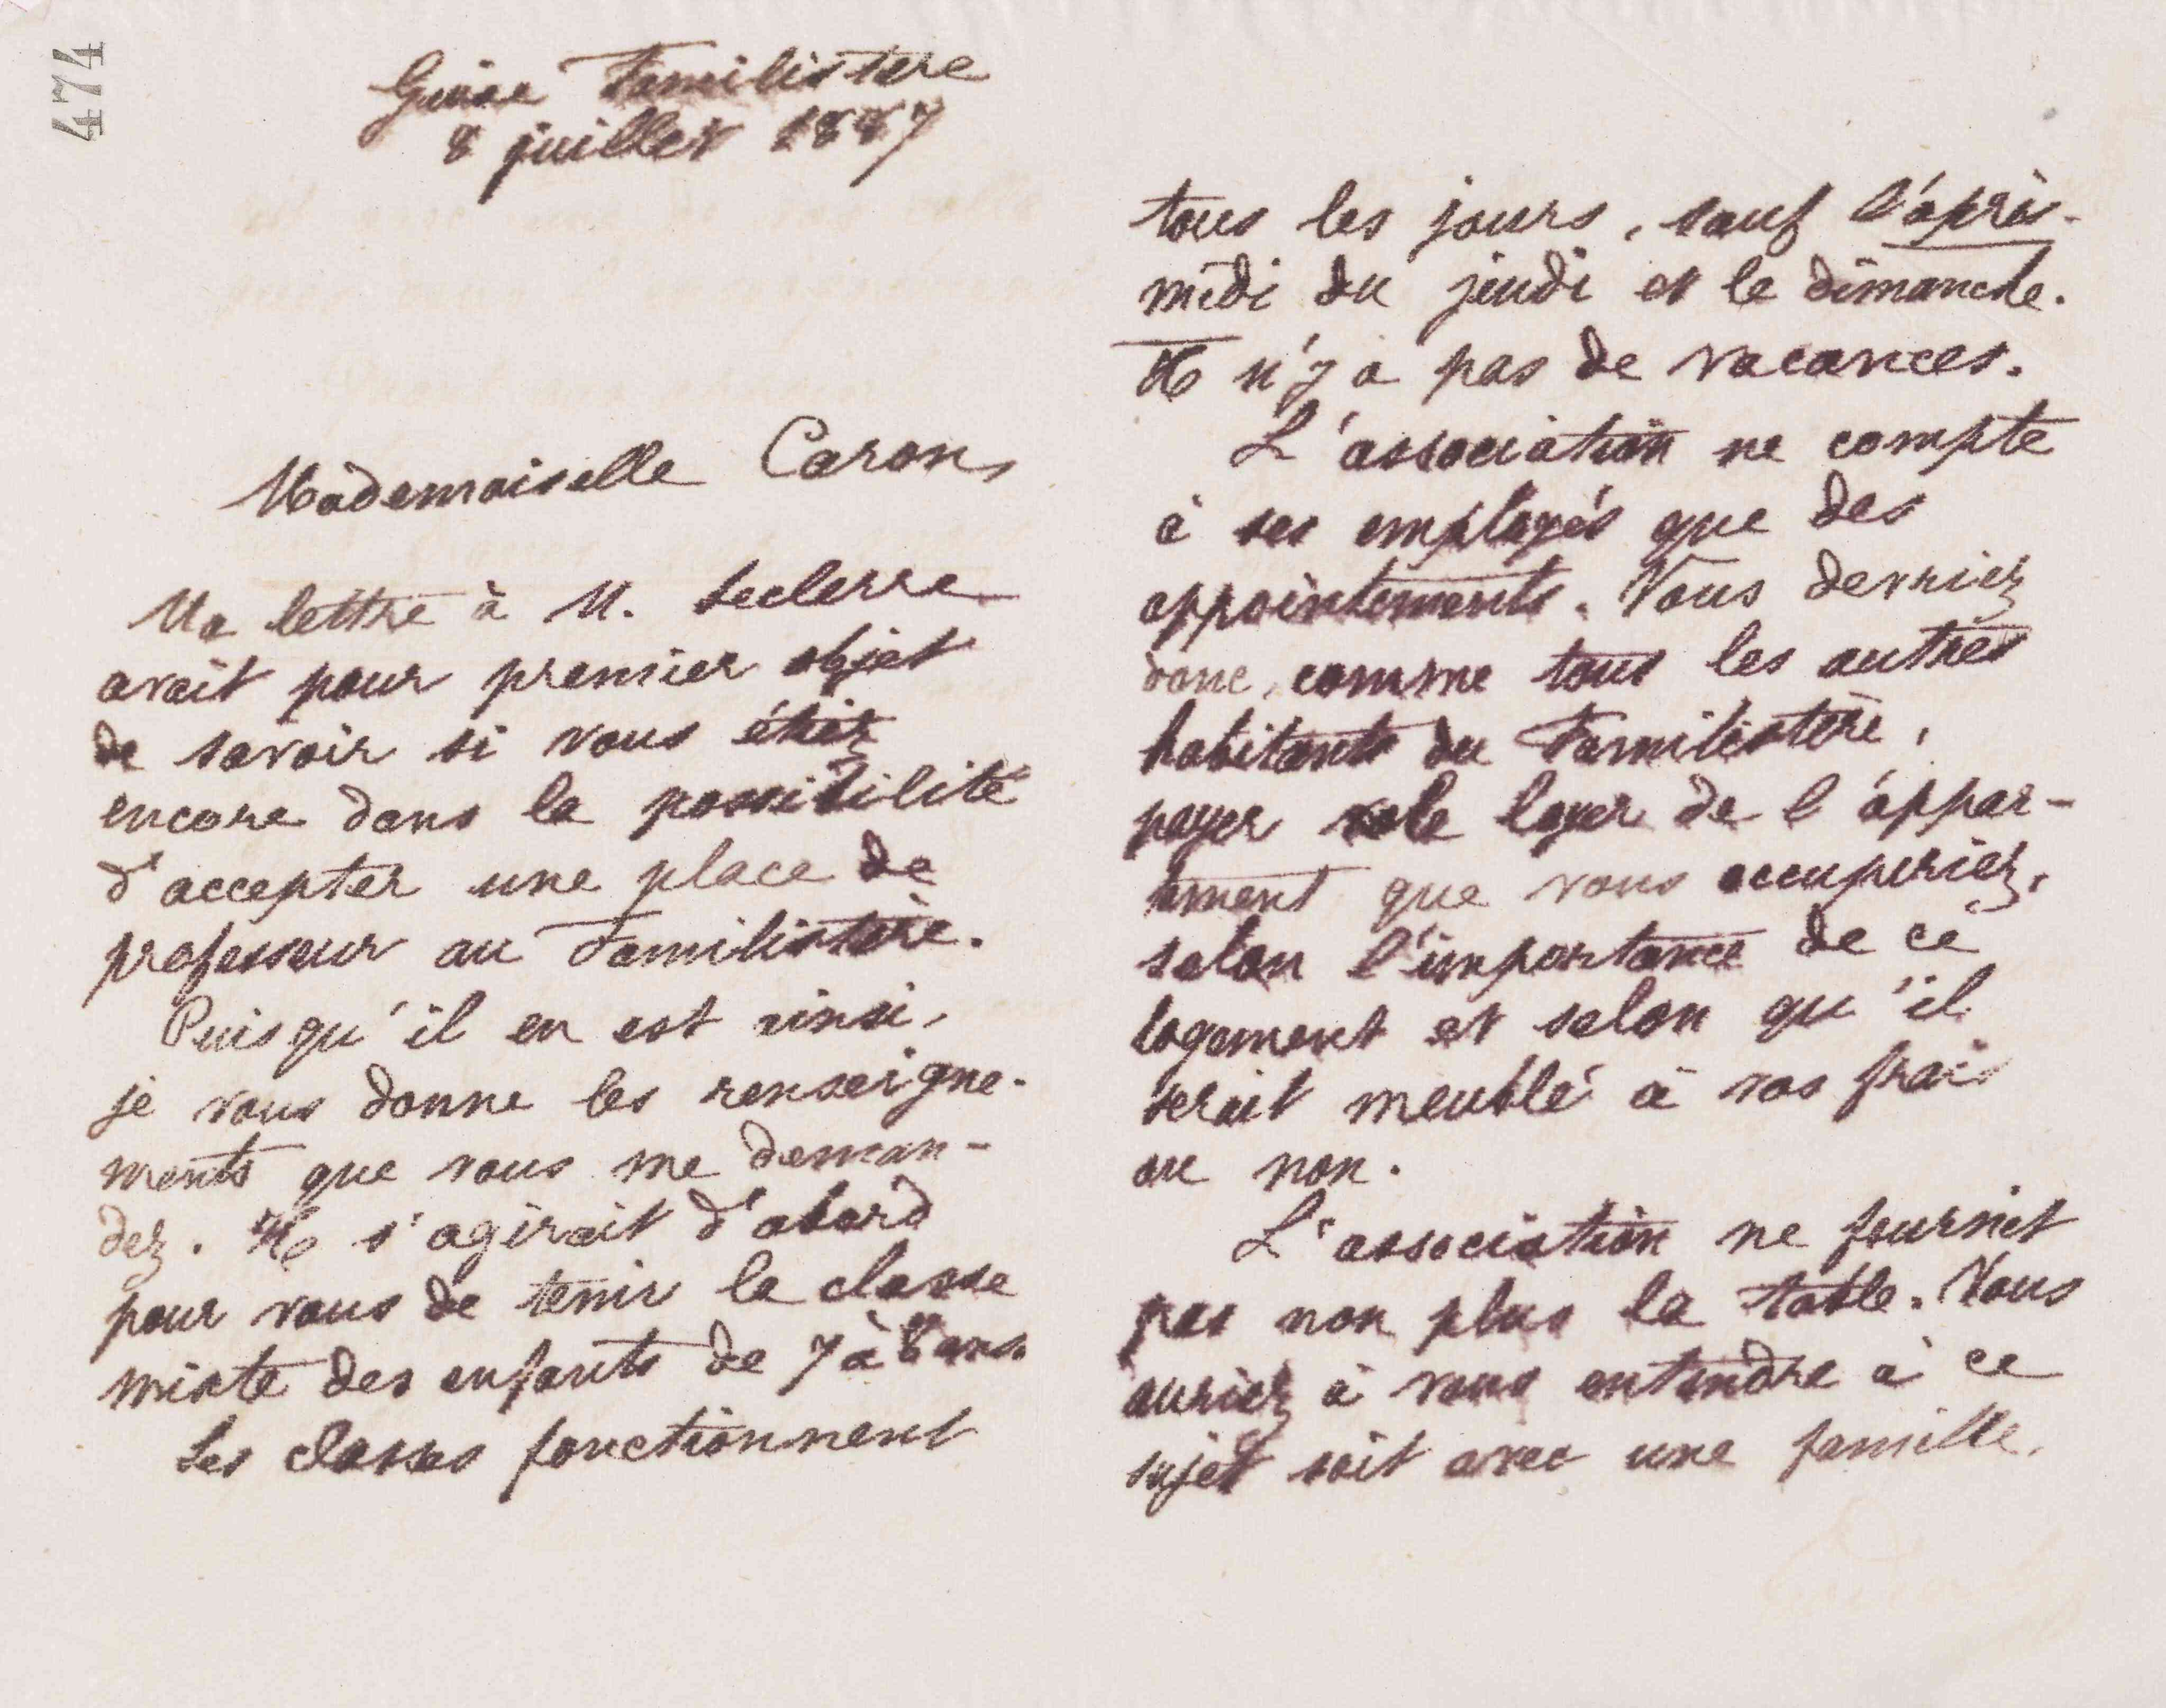 474
Guise Familistère
8 juillet 1887
Mademoiselle Caron,
Ma lettre à M. Leclerre
avait pour premier objet
de savoir si vous étiez
encore dans la possibilité
d'accepter une place de
professeur au Familistère.
Puisqu'il en est ainsi,
je vous donne les renseigne-
ments que vous me deman-
dez. Il s'agirait d'abord
pour vous de tenir la classe
mixte des enfants de 7 à 8 ans.
Les classes fonctionnent
tous les jours, sauf l'après-
midi du jeudi et le dimanche.
Il n'y a pas de vacances.
L'association ne compte
à ses employés que des
appointements. Vous devriez
donc, comme tous les autres
habitants du Familistère,
payer le loyer de l'appar-
tement que vous occuperiez,
selon l'importance de ce
logement et selon qu'il
serait meublé à vos frais
ou non.
L'association ne fournit
pas non plus la table. Vous
auriez à vous entendre à ce
sujet soit avec une famille,